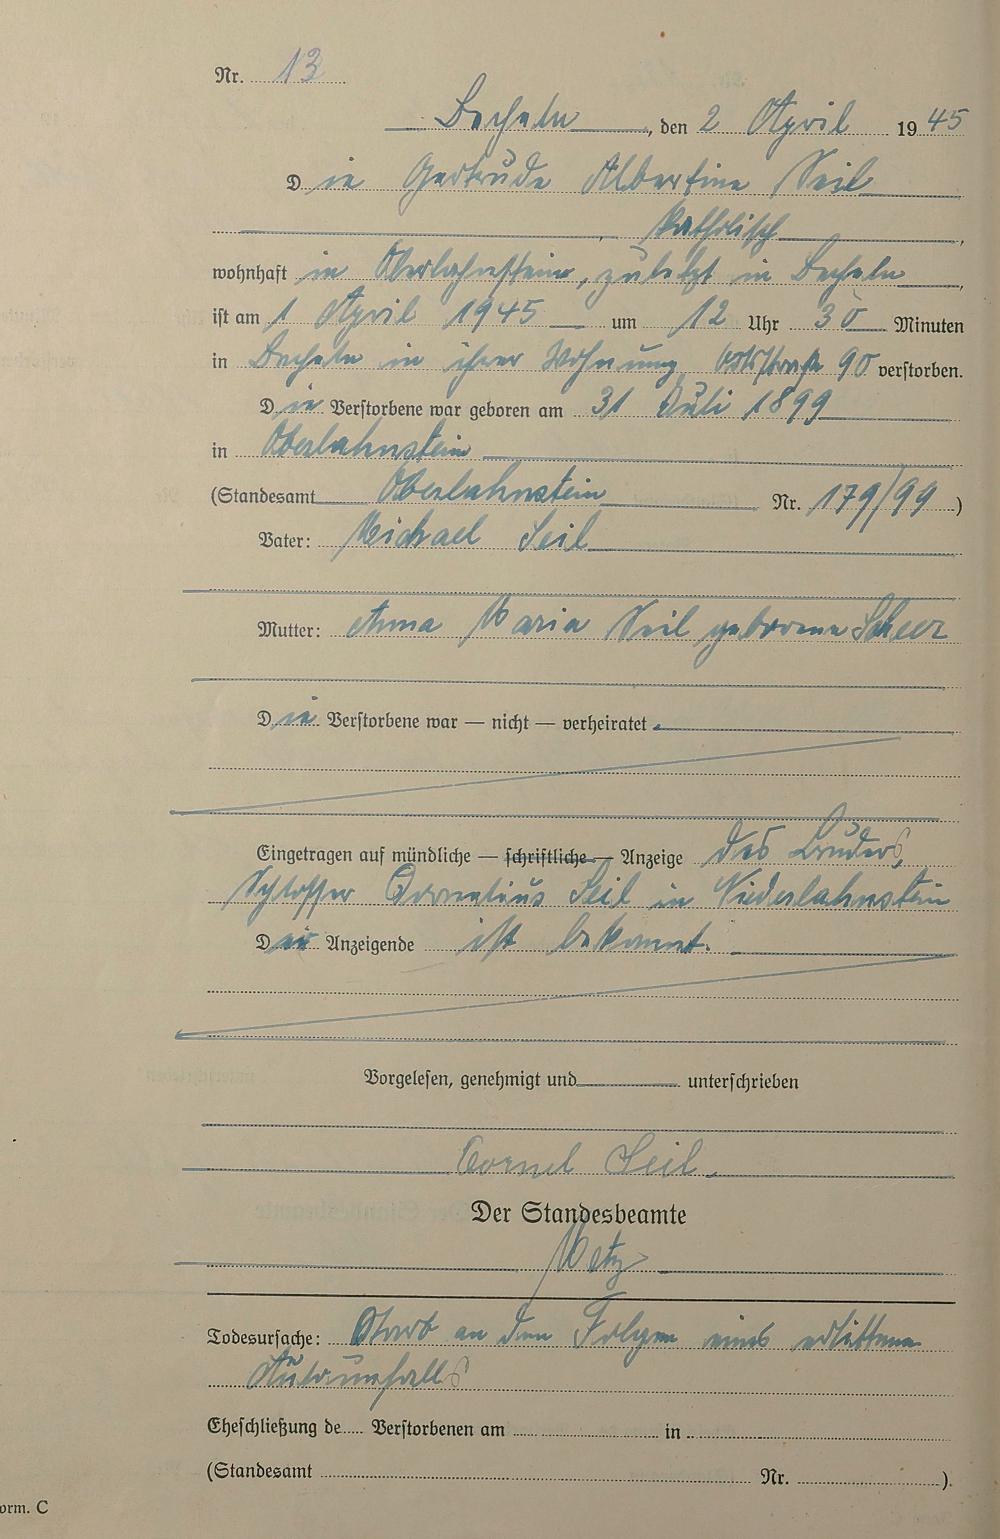 Nr. 13
Becheln, den 2 April 1945
Die Gertrude Albertine Seil
, katholisch,
wohnhaft in Oberlahnstein, zuletzt in Becheln,
ist am 1 April 1945 um 12 Uhr 30 Minuten
in Becheln in ihrer Wohnung 90 verstorben.
Die Verstorbene war geboren am 31 Juli 1899
in Oberlahnstein
(Standesamt Oberlahnstein Nr. 179/99)
Vater: Michael Seil
Mutter: Anna Maria Seil geborene Scheer
Die Verstorbene war — nicht — verheiratet.
Eingetragen auf mündliche — schriftliche — Anzeige des Bruders,
Schlosser Cornelius Seil in Niederlahnstein
Der Anzeigende ist bekannt.
Vorgelesen, genehmigt und unterschrieben
Cornel Seil
Der Standesbeamte
Metz
Todesursache: Starb an den Folgen eines erlittenen
Autounfalls
Eheschließung de Verstorbenen am in
(Standesamt Nr. ).
orm. C